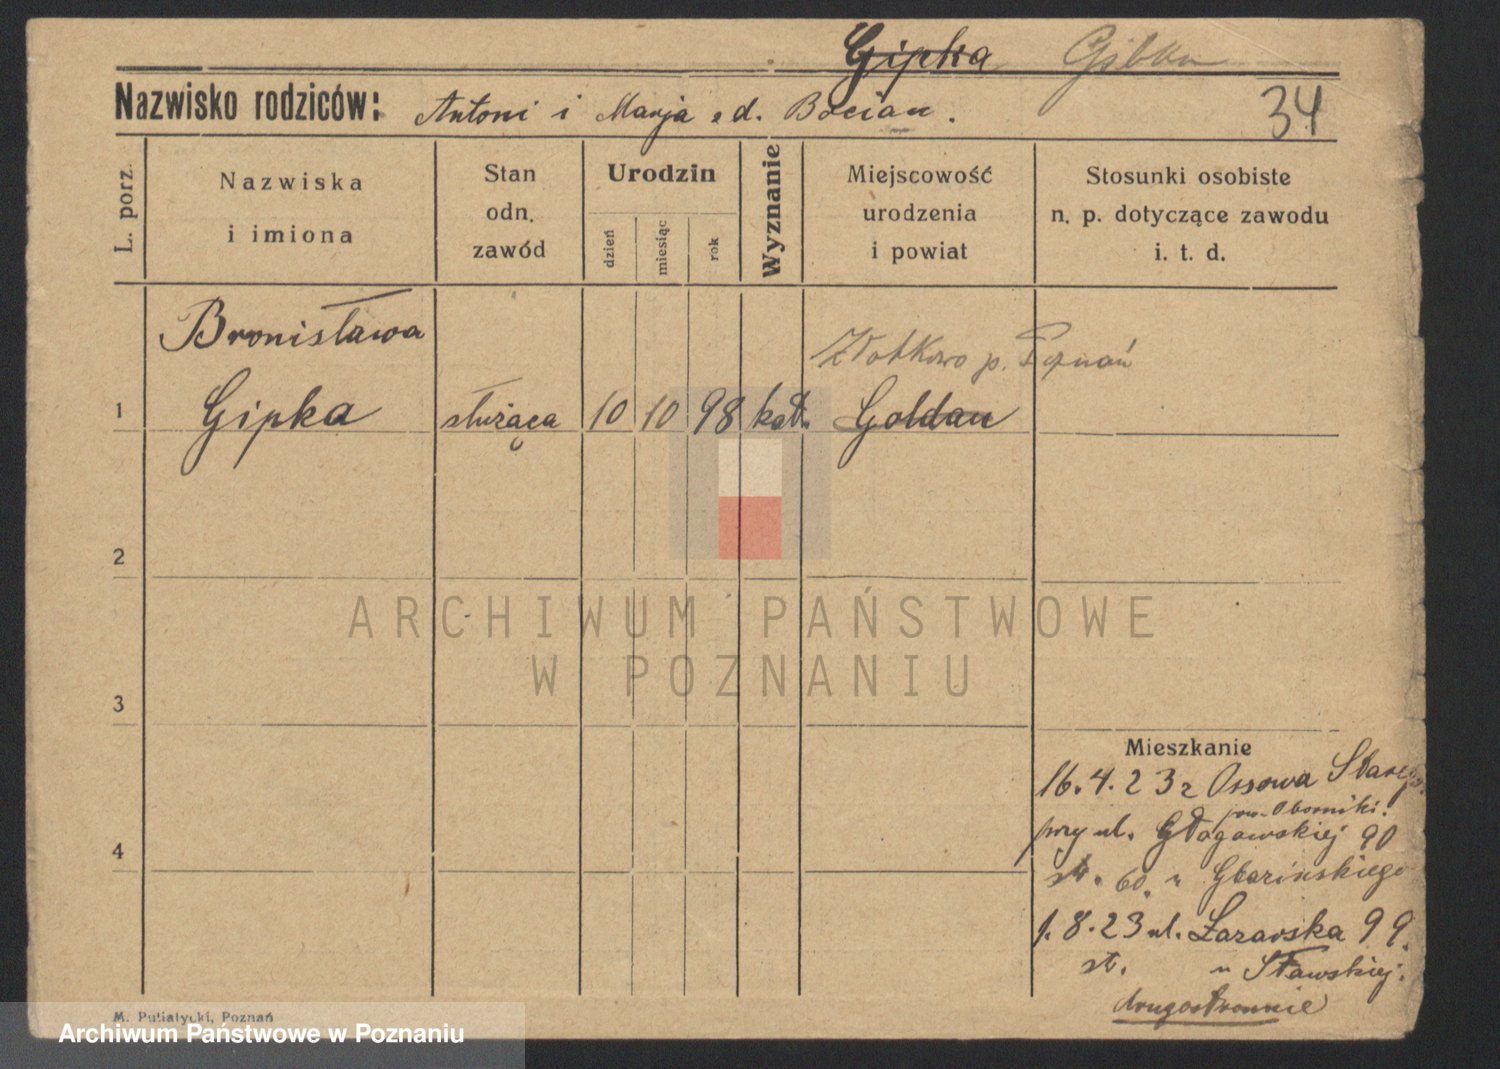 Gipka Gibka
Nazwisko rodziców: Antoni i Marja z d. Bocian.
34
L. porz.
Nazwiska
i imiona
Stan
odn.
zawód
Urodzin
dzień
miesiąc
rok
Wyznanie
Miejscowość
urodzenia
i powiat
Stosunki osobiste
n. p. dotyczące zawodu
i. t. d.
Bronisława
Złotkowo p. Poznań
1 Gipka służąca 10 10 98 kat. Goldau
2
ARCHIWUM PAŃSTWOWE
W POZNANIU
3
Mieszkanie
16.4.23 z Ossowa
pow. Oborniki.
przy ul. Głogowskiej 90
st. 60. u
4
1.8.23 ul. Łazarska 99.
st. u Sławskiej.
drugostronnie
M. Putiatycki, Poznań
Archiwum Państwowe w Poznaniu